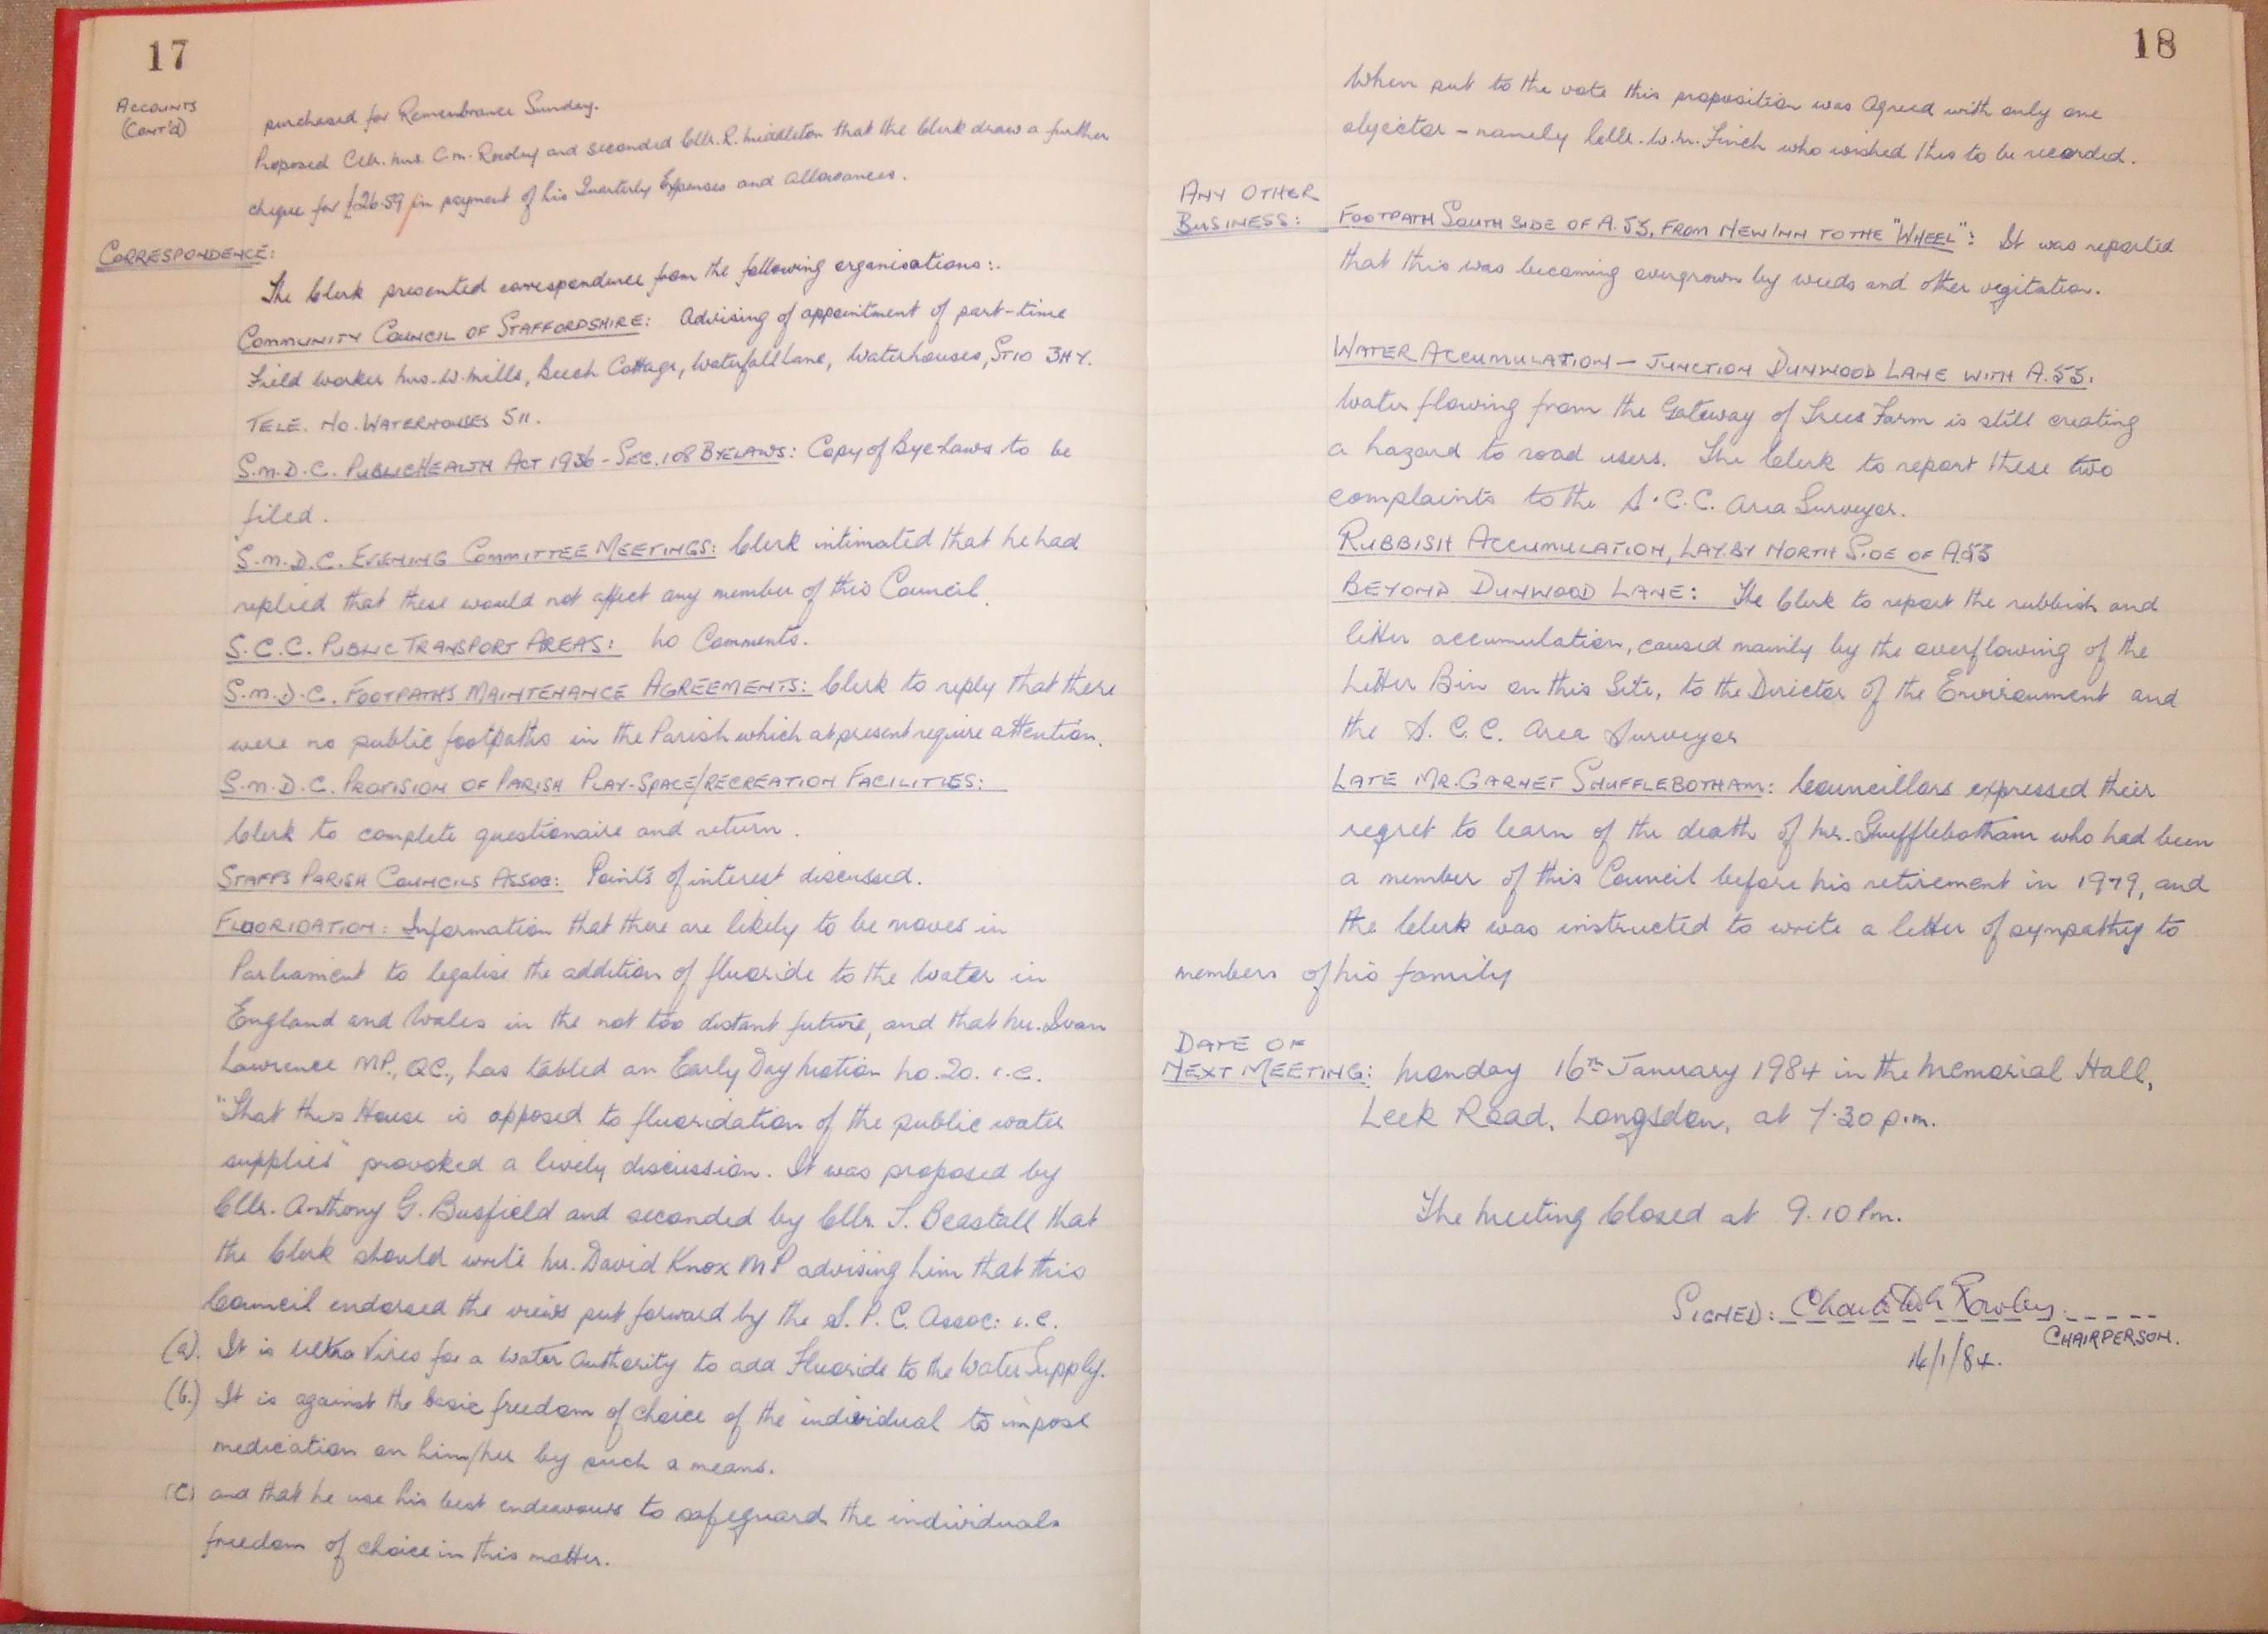 17
ACCOUNTS
(CONT'D)
purchased for Remembrance Sunday.
Proposed Cllr. Mrs. C.M. Rowley and seconded Cllr. R. Middleton that the Clerk draw a further
cheque for £26.59 in payment of his Quarterly Expenses and Allowances.
CORRESPONDENCE:
The Clerk presented correspondence from the following organisations:.
COMMUNITY COUNCIL OF STAFFORDSHIRE: Advising of appointment of part-time
Field Worker Mrs. W. Mills, Beech Cottage, Waterfall Lane, Waterhouses, ST10 3HY.
TELE. NO. WATERHOUSES 511.
S.M.D.C. PUBLIC HEALTH ACT 1936 - SEC. 108 BYELAWS: Copy of Bye Laws to be
filed.
S.M.D.C. EVENING COMMITTEE MEETINGS: Clerk intimated that he had
replied that these would not affect any member of this Council.
S.C.C. PUBLIC TRANSPORT AREAS: No Comments.
S.M.D.C. FOOTPATHS MAINTENANCE AGREEMENTS: Clerk to reply that there
were no public footpaths in the Parish which at present require attention.
S.M.D.C. PROVISION OF PARISH PLAY-SPACE/RECREATION FACILITIES:
Clerk to complete questionaire and return.
STAFFS PARISH COUNCILS ASSOC: Points of interest discussed.
FLOORIDATION: Information that there are likely to be moves in
Parliament to legalise the addition of fluoride to the Water in
England and Wales in the not too distant future, and that Mr. Ivan
Lawrence MP., QC., has tabled an Early Day Motion No. 20. i.e.
"That this House is opposed to fluoridation of the public water
supplies" provoked a lively discussion. It was proposed by
Cllr. Anthony G. Busfield and seconded by Cllr. T. Beastall that
the Clerk should write Mr. David Knox MP advising him that this
Council endorsed the views put forward by the S.P.C. Assoc: i.e.
(a). It is Ultra Vires for a Water Authority to add Fluoride to the Water Supply.
(b.) It is against the basic freedom of choice of the individual to impose
medication on him/her by such a means.
(c) and that he use his best endeavours to safeguard the individuals
freedom of choice in this matter.
18
When put to the vote this proposition was Agreed with only one
objector - namely Cllr. W.M. Finch who wished this to be recorded.
ANY OTHER
BUSINESS: FOOTPATH SOUTH SIDE OF A.53, FROM NEW INN TO THE "WHEEL": It was reported
that this was becoming overgrown by weeds and other vegitation.
WATER ACCUMULATION - JUNCTION DUNWOOD LANE WITH A.53.
Water flowing from the Gateway of Trees Farm is still creating
a hazard to road users. The Clerk to report these two
complaints to the S.C.C. Area Surveyor.
RUBBISH ACCUMULATION, LAY.BY NORTH SIDE OF A.53
BEYOND DUNWOOD LANE: The Clerk to report the rubbish and
litter accumulation, caused mainly by the overflowing of the
Litter Bin on this Site, to the Director of the Environment and
the S.C.C. Area Surveyor
LATE MR. GARNET SHUFFLEBOTHAM: Councillors expressed their
regret to learn of the death of Mr. Shufflebotham who had been
a member of this Council before his retirement in 1979, and
the Clerk was instructed to write a letter of sympathy to
members of his family
DATE OF
NEXT MEETING: Monday 16th January 1984 in the Memorial Hall,
Leek Road, Longsdon, at 7.30 p.m.
The Meeting Closed at 9.10 Pm.
SIGNED: Rowley
CHAIRPERSON.
16/1/84.